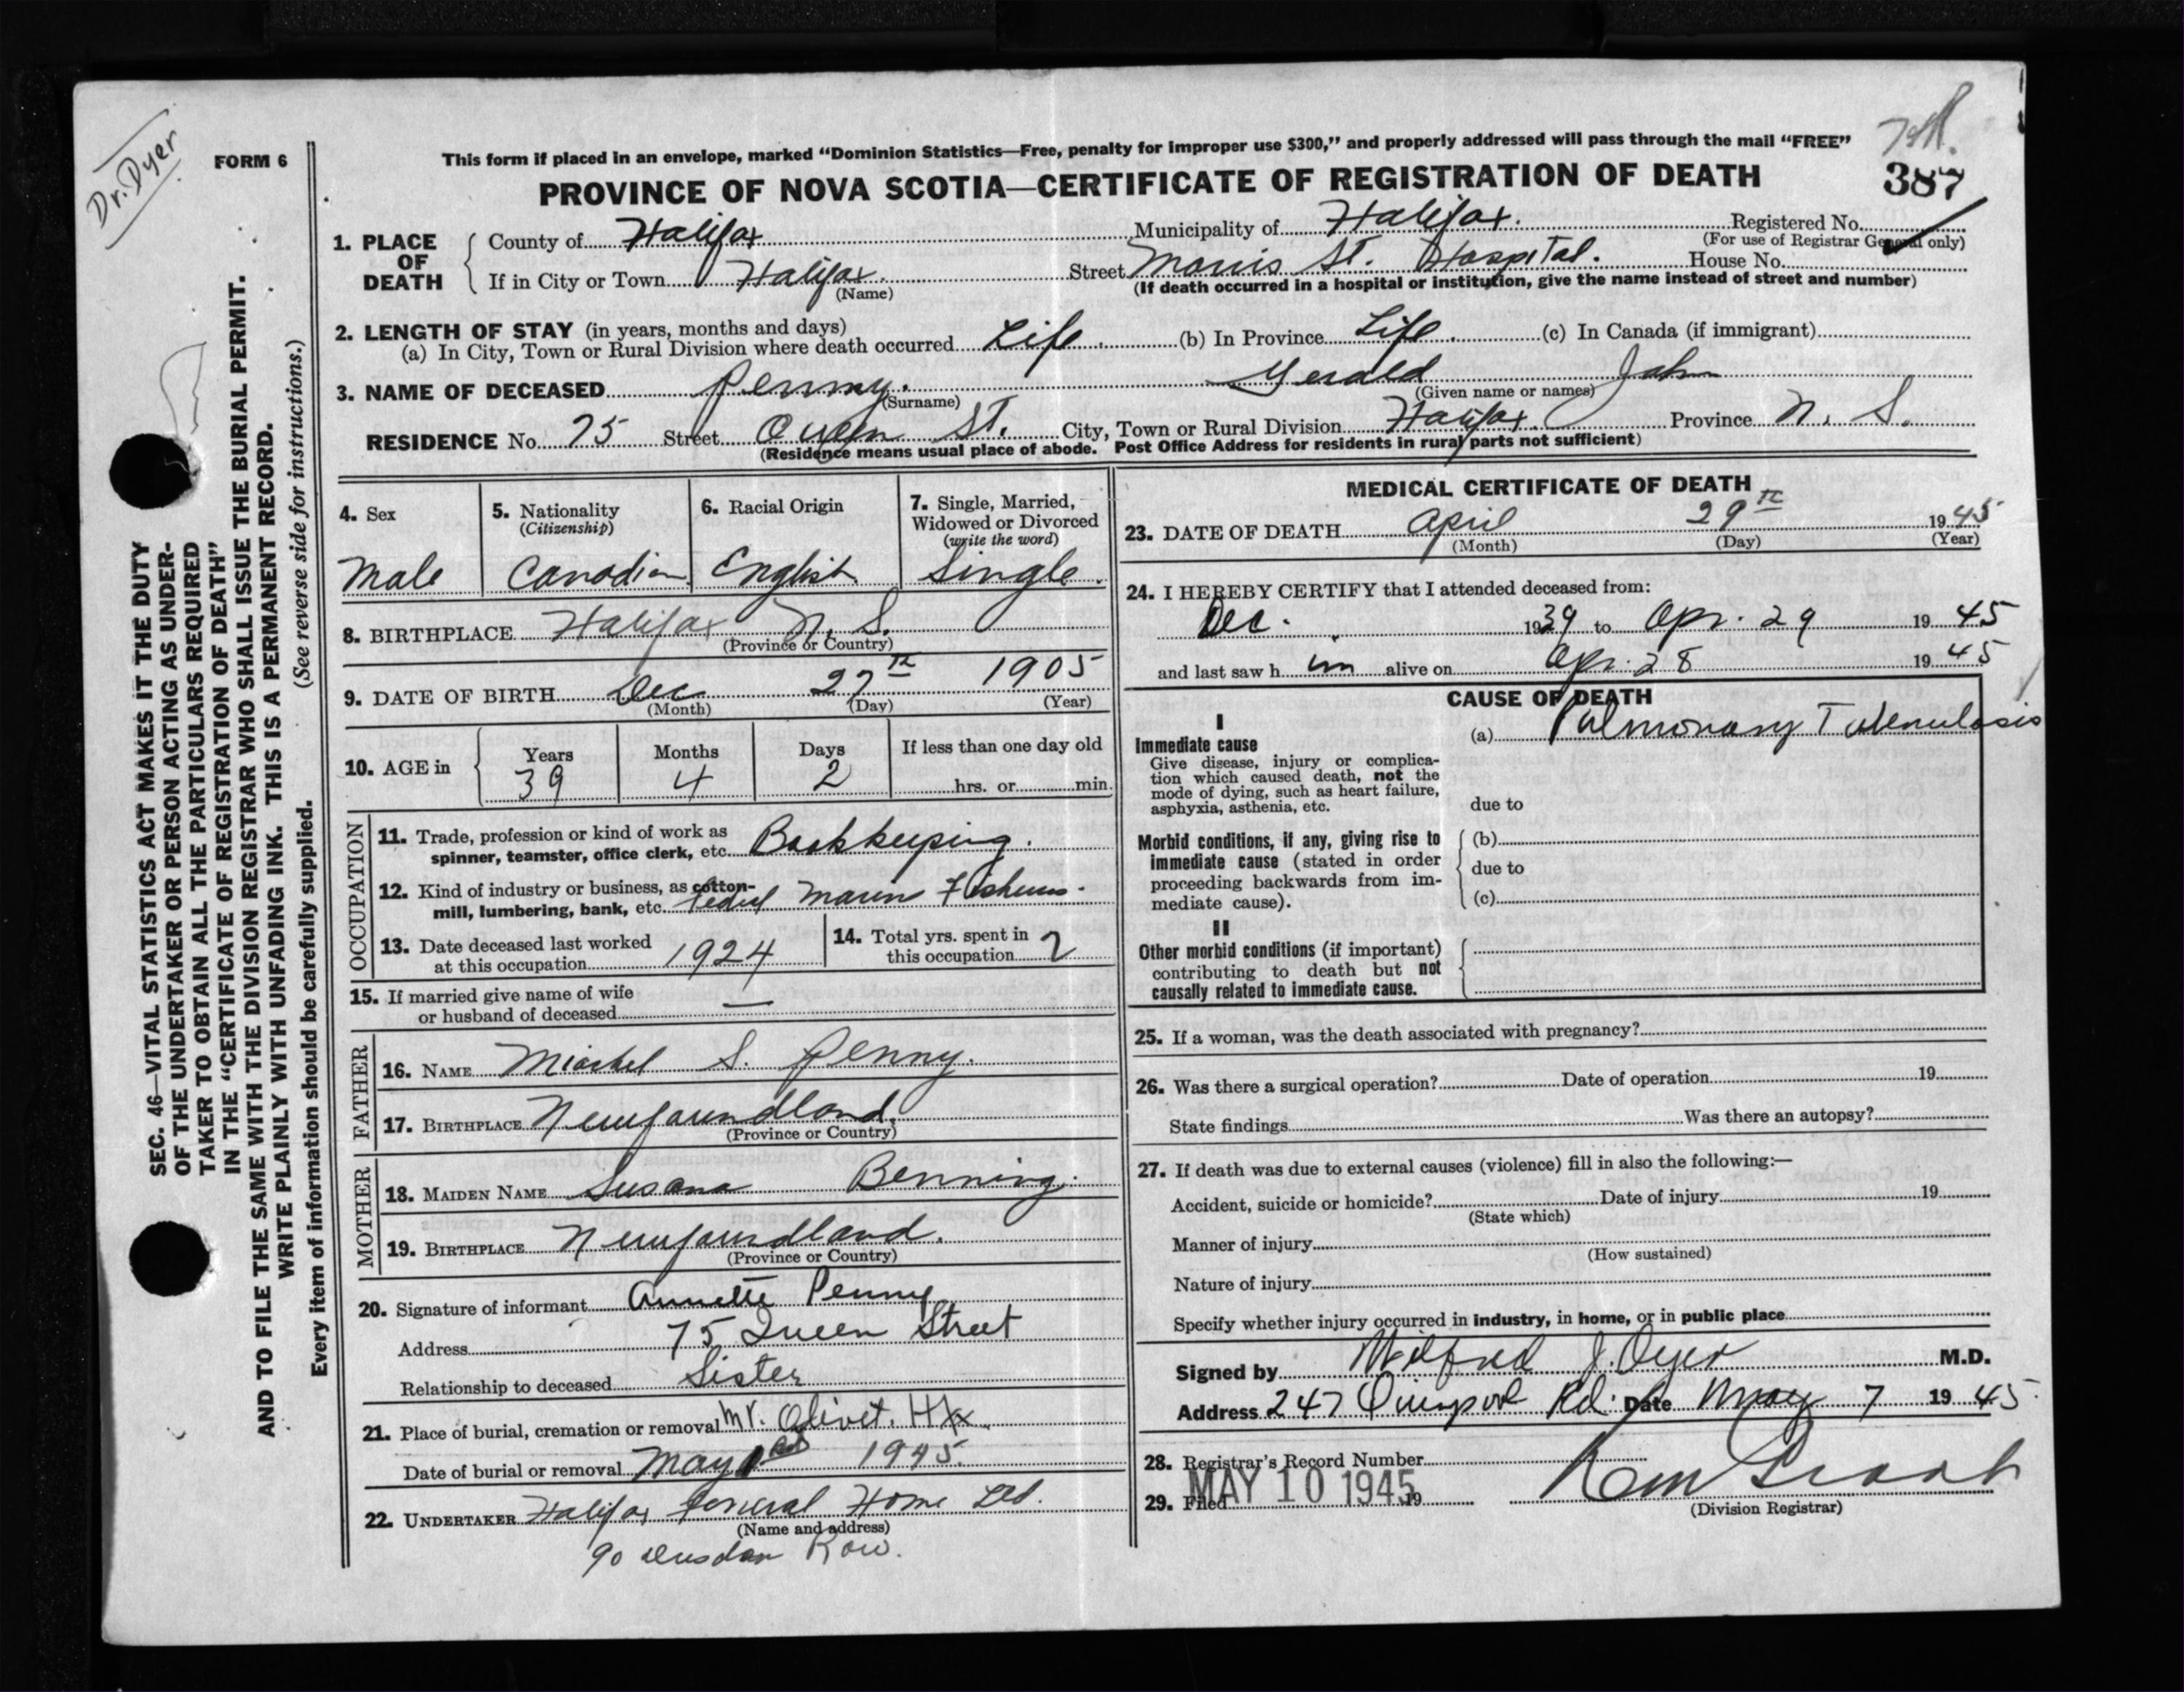 Dr. Dyer
FORM 6
This form if placed in an envelope, marked "Dominion Statistics—Free, penalty for improper use $300," and properly addressed will pass through the mail "FREE"
PROVINCE OF NOVA SCOTIA—CERTIFICATE OF REGISTRATION OF DEATH
387
1. PLACE OF DEATH
County of Halifax Municipality of Halifax. Registered No.
(For use of Registrar General only)
If in City or Town Halifax. Street Morris St. Hospital. House No.
(Name) (If death occurred in a hospital or institution, give the name instead of street and number)
2. LENGTH OF STAY (in years, months and days)
(a) In City, Town or Rural Division where death occurred Life. (b) In Province Life. (c) In Canada (if immigrant)
3. NAME OF DECEASED Penny. Gerald John
(Surname) (Given name or names)
RESIDENCE No. 75 Street Queen St. City, Town or Rural Division Halifax. Province N. S.
(Residence means usual place of abode. Post Office Address for residents in rural parts not sufficient)
4. Sex
Male
5. Nationality
(Citizenship)
Canadian
6. Racial Origin
English
7. Single, Married,
Widowed or Divorced
(write the word)
Single.
8. BIRTHPLACE Halifax N. S.
(Province or Country)
9. DATE OF BIRTH Dec 27th 1905
(Month) (Day) (Year)
10. AGE in
Years Months Days If less than one day old
39 4 2 hrs. or min.
OCCUPATION
11. Trade, profession or kind of work as
spinner, teamster, office clerk, etc. Bookkeeping.
12. Kind of industry or business, as cotton-
mill, lumbering, bank, etc. Marin
13. Date deceased last worked
at this occupation 1924
14. Total yrs. spent in
this occupation 2
15. If married give name of wife
or husband of deceased —
FATHER
16. NAME Michel S. Penny.
17. BIRTHPLACE Newfoundland.
(Province or Country)
MOTHER
18. MAIDEN NAME Susana Benning.
19. BIRTHPLACE Newfoundland.
(Province or Country)
20. Signature of informant Annette Penny
Address 75 Queen Street
Relationship to deceased Sister
21. Place of burial, cremation or removal Mt. Olivet. Hfx
Date of burial or removal May 1945.
22. UNDERTAKER Halifax Funeral Home Ltd.
(Name and address)
90 Row.
MEDICAL CERTIFICATE OF DEATH
23. DATE OF DEATH April 29th 1945
(Month) (Day) (Year)
24. I HEREBY CERTIFY that I attended deceased from:
Dec. 1939 to Apr. 29 1945
and last saw h im alive on Apr. 28 1945
CAUSE OF DEATH
I
Immediate cause
Give disease, injury or complica-
tion which caused death, not the
mode of dying, such as heart failure,
asphyxia, asthenia, etc.
(a) Pulmonary Tuberculosis
due to
Morbid conditions, if any, giving rise to
immediate cause (stated in order
proceeding backwards from im-
mediate cause).
(b)
due to
(c)
II
Other morbid conditions (if important)
contributing to death but not
causally related to immediate cause.
25. If a woman, was the death associated with pregnancy?
26. Was there a surgical operation? Date of operation 19
State findings Was there an autopsy?
27. If death was due to external causes (violence) fill in also the following:—
Accident, suicide or homicide? Date of injury 19
(State which)
Manner of injury
(How sustained)
Nature of injury
Specify whether injury occurred in industry, in home, or in public place
Signed by Milfred J. Dyer M.D.
Address 247 Quinpool Rd. Date May 7 1945
28. Registrar's Record Number
29. Filed MAY 10 1945 19
(Division Registrar)
SEC. 46—VITAL STATISTICS ACT MAKES IT THE DUTY
OF THE UNDERTAKER OR PERSON ACTING AS UNDER-
TAKER TO OBTAIN ALL THE PARTICULARS REQUIRED
IN THE "CERTIFICATE OF REGISTRATION OF DEATH"
AND TO FILE THE SAME WITH THE DIVISION REGISTRAR WHO SHALL ISSUE THE BURIAL PERMIT.
WRITE PLAINLY WITH UNFADING INK. THIS IS A PERMANENT RECORD.
Every item of information should be carefully supplied. (See reverse side for instructions.)